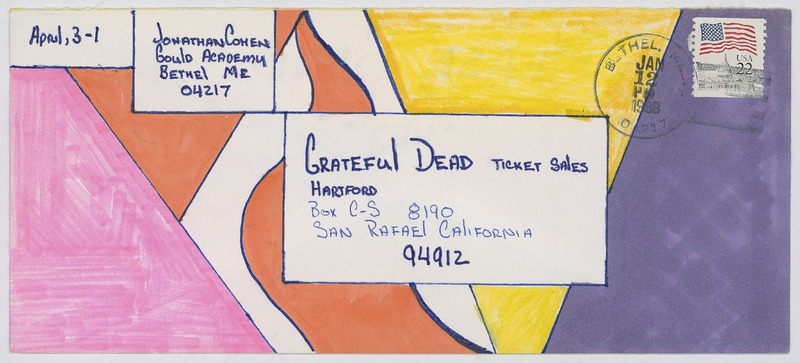 April, 3-1
Jonathan Cohen
Gould Academy
Bethel ME
04217
BETHEL,
JAN
12
PM
1988
04217
USA
22
Grateful Dead Ticket Sales
Hartford
Box C-S 8190
San Rafael California
94912